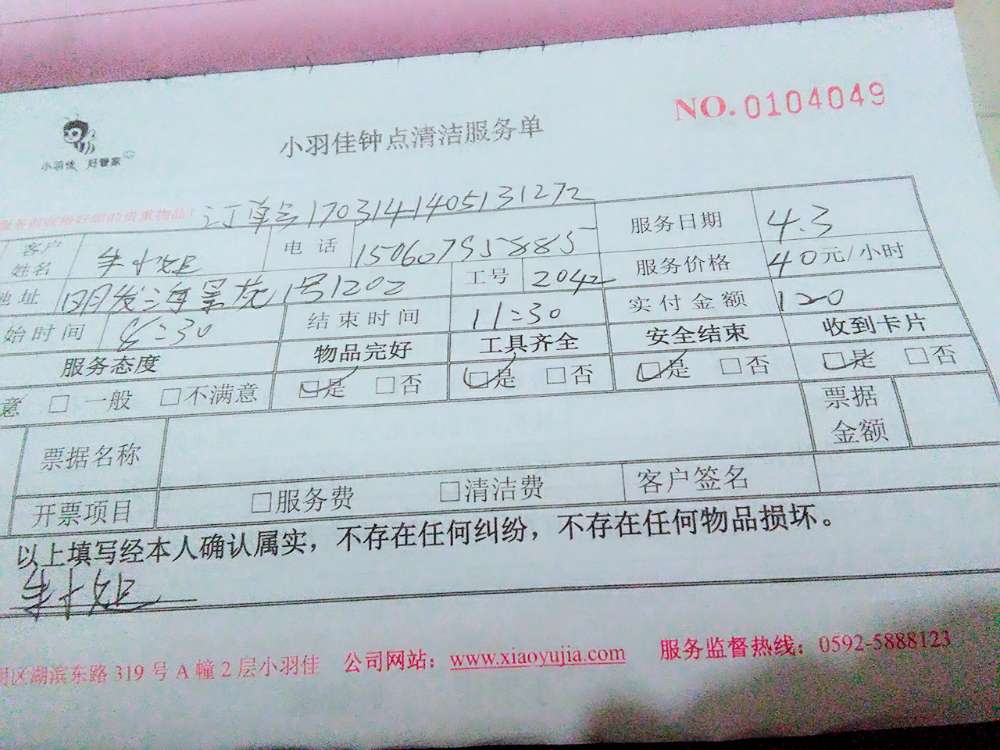 NO.0104049
小羽佳 好管家
小羽佳钟点清洁服务单
订单号1703141405131272
客户姓名 朱小姐 电话 15060795885 服务日期 4.3
地址 明发海景苑1号1202 工号 2042 服务价格 40元/小时
始时间 8:30 结束时间 11:30 实付金额 120
服务态度 物品完好 工具齐全 安全结束 收到卡片
意 □ 一般 □不满意 □是 □否 □是 □否 □是 □否 □是 □否
票据名称 票据金额
开票项目 □服务费 □清洁费 客户签名
以上填写经本人确认属实，不存在任何纠纷，不存在任何物品损坏。
朱小姐
区湖滨东路 319 号 A 幢 2 层小羽佳 公司网站：www.xiaoyujia.com 服务监督热线：0592-5888123